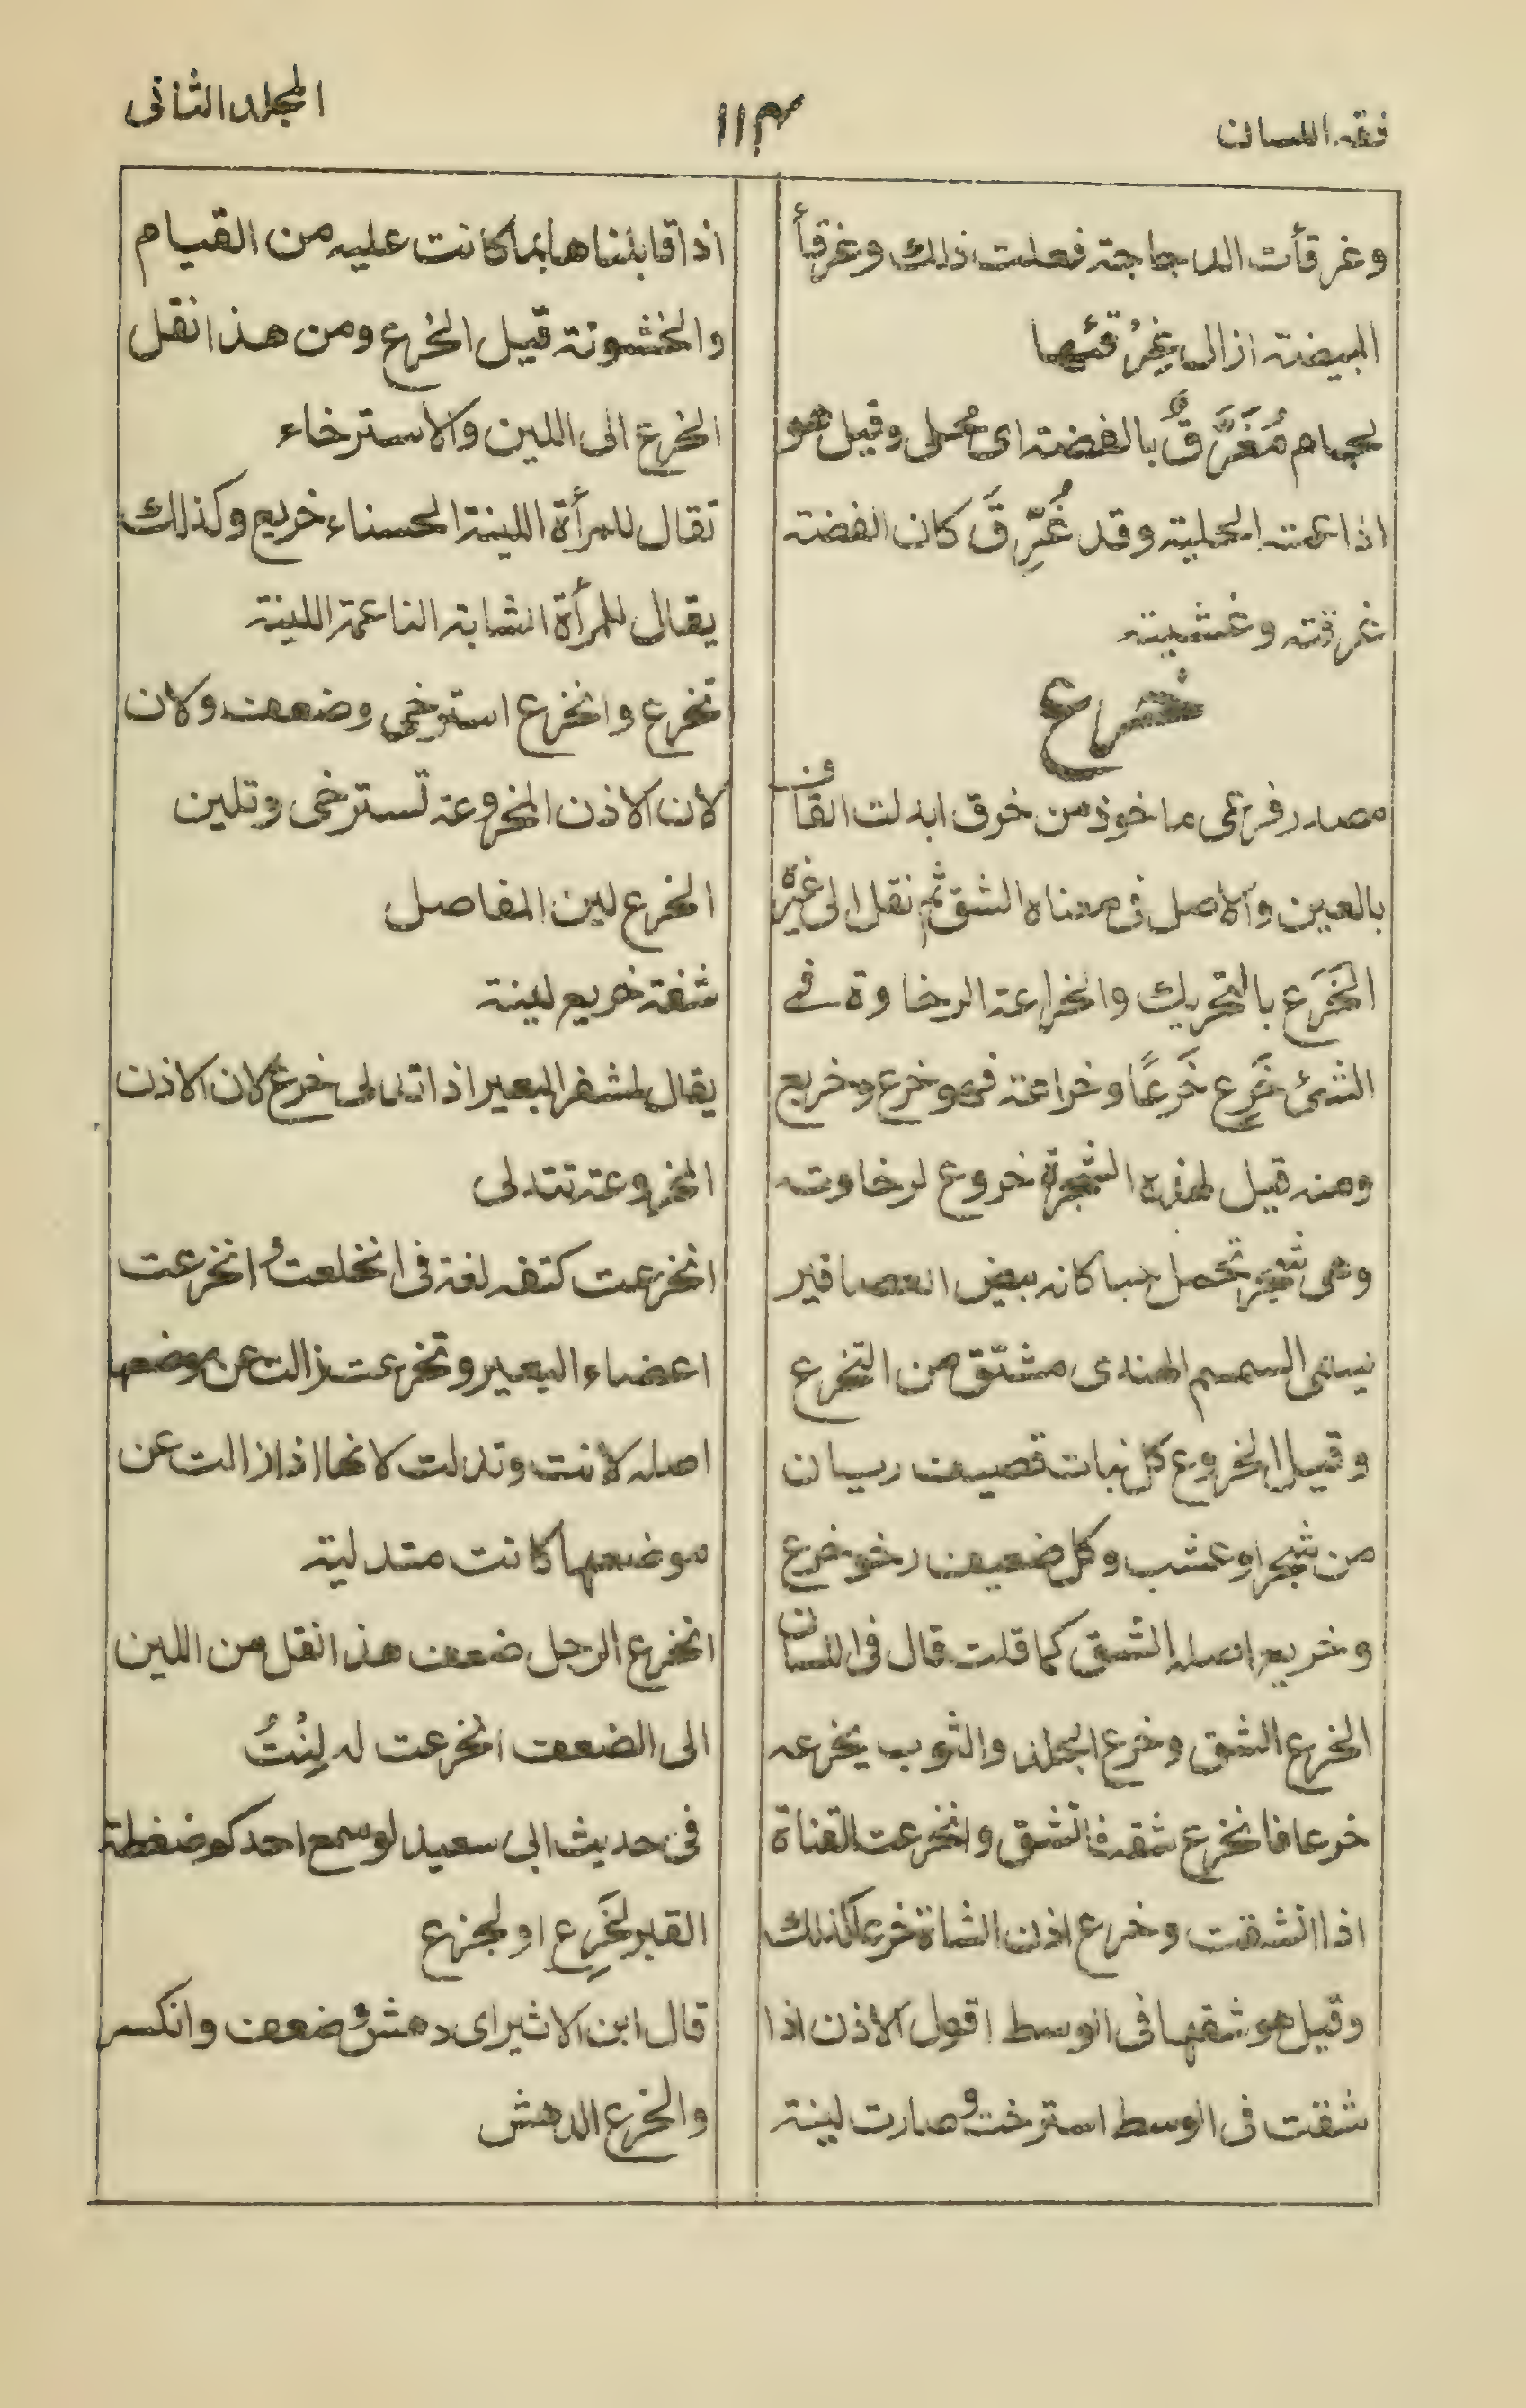 فقه اللسان
١١٣
المجلد الثانی
وغرقأت الدجاجة فعلت ذلك وغرقأ
البيضة ازال غِرْقئها
لجام مُغَرَّقٌ بالفضة ای محلی وقيل هو
اذا عمته الحلية وقد غُرِّقَ كان الفضة
غرقته وغشيته
خرع
مصدر فرعی ماخوذ من خرق ابدلت القاف
بالعين والاصل فی معناه الشق ثم نقل الی غيره
الخَرَع بالتحريك والخراعة الرخاوة فے
الشئ خَرِع خَرَعًا وخراعة فهو خرع وخريع
ومنه قيل لهذه الشجرة خروع لرخاوته
وهی شجرة تحمل حبا كانه بيض العصافير
يسمی السمسم الهندی مشتق من التخرع
وقيل الخروع كل نبات قصيف ريان
من شجر او عشب وكل ضعيف رخو خرع
وخريع اصله الشق كما قلت قال فی اللسان
الخرع الشق وخرع الجلد والثوب يخرعه
خرعا فانخرع شقه فانشق وانخرعت القناة
اذا انشقت وخرع اذن الشاة خرعا كذلك
وقيل هو شقها فی الوسط اقول الاذن اذا
شقت فی الوسط استرخت وصارت لينة
اذا قابلناها بما كانت عليه من القيام
والخشونة قيل الخرع ومن هذا نقل
الخرع الی اللين والاسترخاء
تقال للمرأة اللينة الحسناء خريع وكذلك
يقال للمرأة الشابة الناعمة اللينة
تخرع وانخرع استرخی وضعف ولان
لان الاذن المخروعة تسترخی وتلين
الخرع لين المفاصل
شفة خريع لينة
يقال لمشفر البعير اذا تدلی خريع لان الاذن
المخروعة تتدلی
انخرعت كتفه لغة فی انخلعت وانخرعت
اعضاء البعير وتخرعت زالت عن موضعها
اصله لانت وتدلت لانها اذا زالت عن
موضعها كانت متدلية
انخرع الرجل ضعف هذا نقل من اللين
الی الضعف انخرعت له لِنْتُ
فی حديث ابی سعيد لو سمع احدكم ضغطة
القبر لخَرِع او لجزع
قال ابن الاثير ای دهش وضعف وانكسر
والخرع الدهش